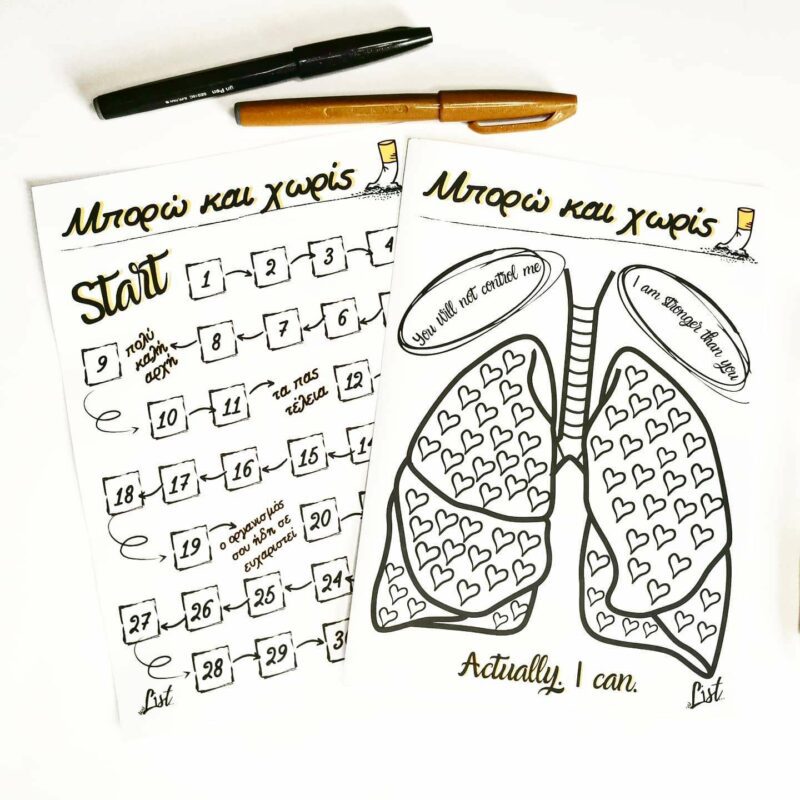 Μπορώ και χωρίς
Start 1 2 3 4
9 πολύ καλή αρχή 8 7 6
10 11 τα πας τέλεια 12
18 17 16 15
19 ο οργανισμός σου ήδη σε ευχαριστεί 20
27 26 25 24
28 29
List
Μπορώ και χωρίς
You will not control me
I am stronger than you
Actually. I can.
List